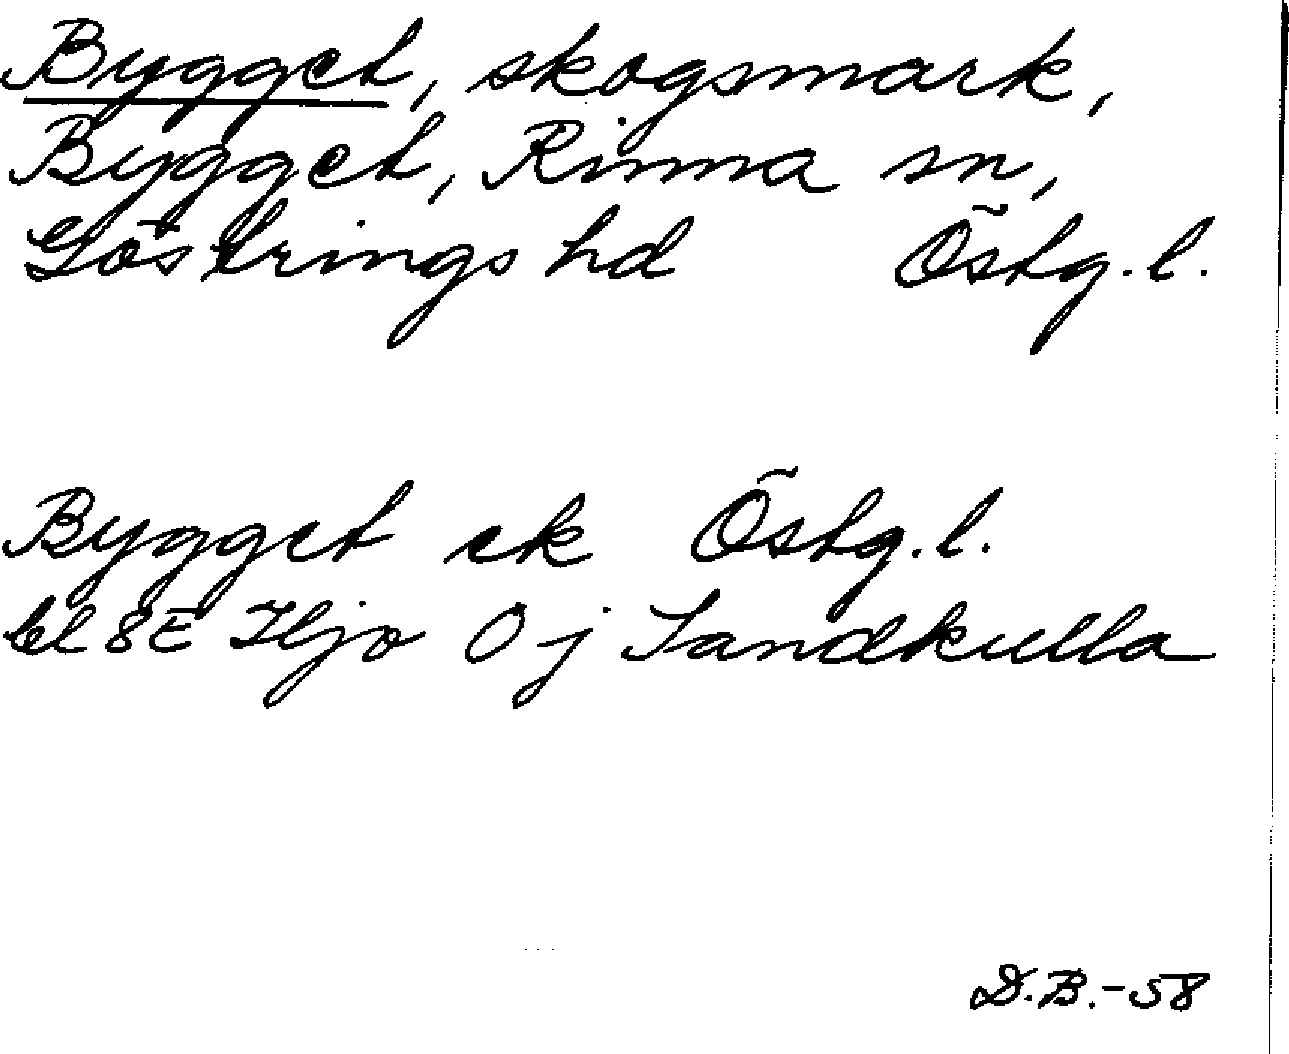 Bygget, skogsmark,
Bygget, Rinna sn,
Göstrings hd Östg. l.
Bygget ek Östg. l.
bl 8E Hjo 0j Sandkulla
D.B.-58